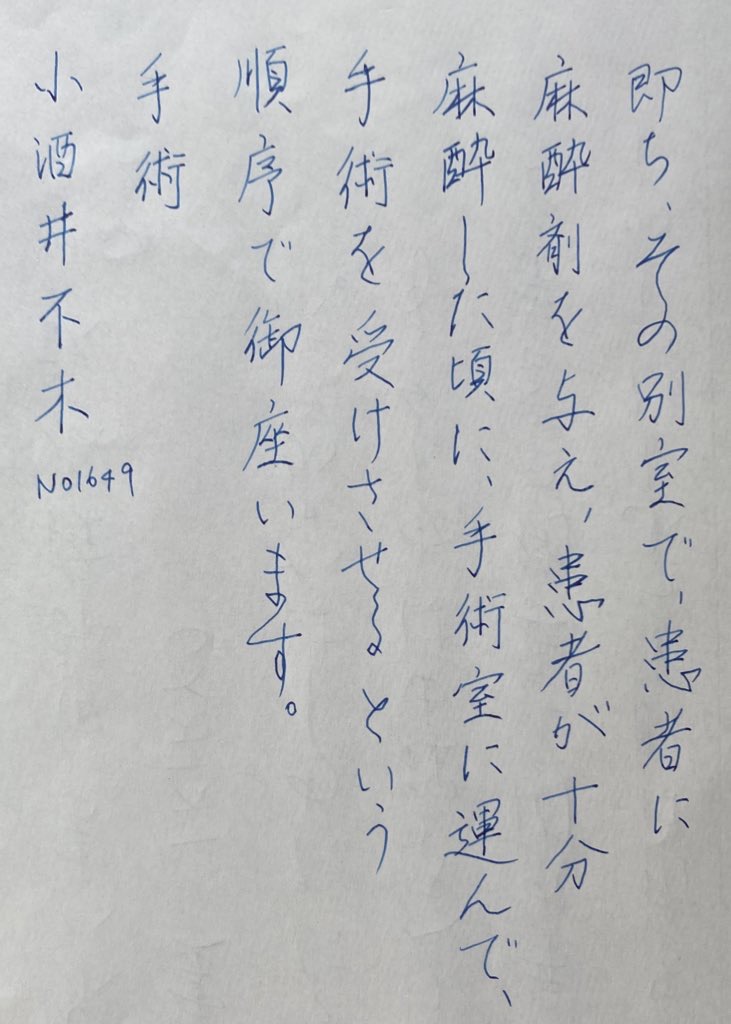 即ち、その別室で、患者に
麻酔剤を与え、患者が十分
麻酔した頃に、手術室に運んで、
手術を受けさせるという
順序で御座います。
手術
小酒井不木
NO1649